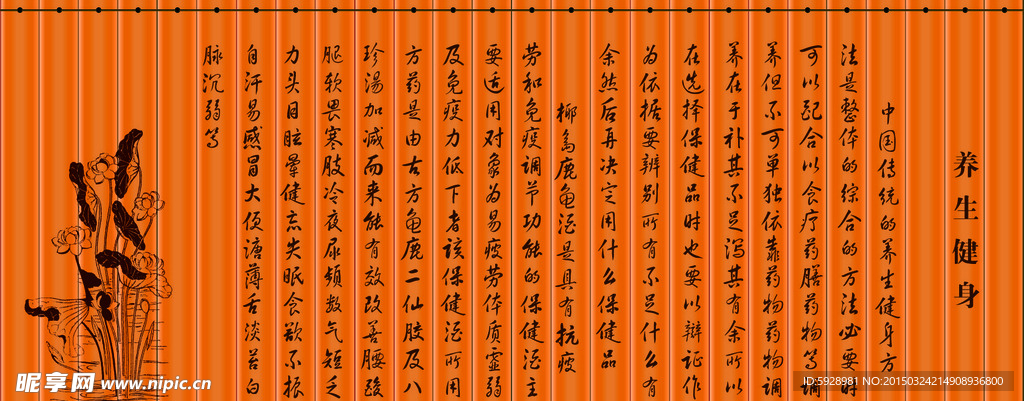 养生健身
中国传统的养生健身方
法是整体的综合的方法必要时
可以配合以食疗药膳药物等调
养但不可单独依靠药物药物调
养在于补其不足泻其有余所以
在选择保健品时也要以辩证作
为依据要辨别所有不足什么有
余然后再决定用什么保健品
椰岛鹿龟酒是具有抗疲
劳和免疫调节功能的保健酒主
要适用对象为易疲劳体质虚弱
及免疫力低下者该保健酒所用
方药是由古方龟鹿二仙胶及八
珍汤加减而来能有效改善腰酸
腿软畏寒肢冷夜尿频数气短乏
力头目眩晕健忘失眠食欲不振
自汗易感冒大便溏薄舌淡苔白
脉沉弱等
昵享网 www.nipic.cn
ID:5928981 NO:20150324214908936800